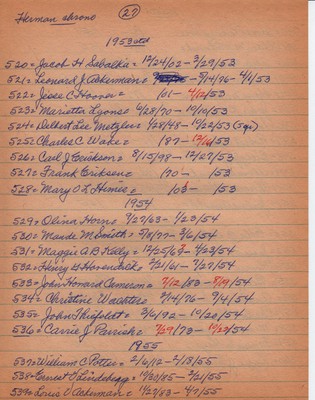 Herman chrono (27)
1953 ctd
520 = Jacob H Sabalkia = 12/24/02 - 3/29/53
521 = Leonard J Ackerman = 5/14/96 - 4/1/53
522 = Jesse C Hoover = 01 - 4/12/53
523 = Marietta Lyons = 6/28/70 - 10/10/53
524 = Delbert Lee Metzler = 4/28/48 - 10/22/53 (5 yr)
525 = Charles C Wake = 187 - 12/16/53
526 = Carl J Erickson = 8/15/98 - 12/27/53
527 = Frank Eriksen = 190 - 153
528 = Mary O L Himes = 103 - 153
1954
529 = Olina Horn = 9/27/63 - 1/23/54
530 = Maude M Smith = 5/8/77 - 3/6/54
531 = Maggie A B Kelly = 12/25/63 - 4/23/54
532 = Henry G Hovendick = 9/21/61 - 7/27/54
533 = John Howard Cameron = 7/12/83 - 8/19/54
534 = Christine Wachter = 9/14/76 - 9/4/54
535 = John Theifolt = 3/6/92 - 10/20/54
536 = Carrie J Parrish = 7/29/73 - 10/22/54
1955
537 = William C Potter = 2/6/12 - 2/18/55
538 = Ernest V Lindskogg = 10/30/85 - 3/21/55
539 = Louis V Ackerman = 11/27/83 - 4/9/55